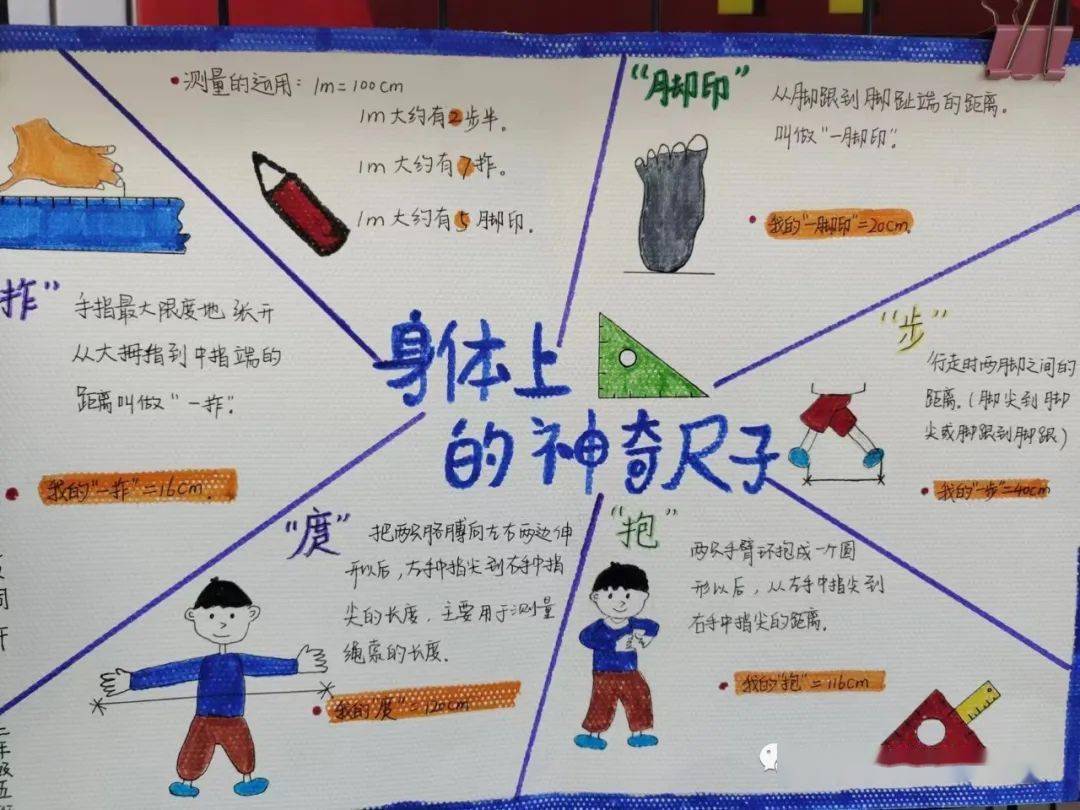 测量的运用：1m=100cm
1m大约有2步半。
1m大约有7拃。
1m大约有5脚印。
“脚印”
从脚跟到脚趾端的距离。
叫做“一脚印”。
我的“一脚印”=20cm.
拃”
手指最大限度地张开
从大拇指到中指端的
距离叫做“一拃”.
我的“一拃”=16cm.
身体上
的神奇尺子
“步”
行走时两脚之间的
距离.(脚尖到脚
尖或脚跟到脚跟)
我的“一步”=40cm
“度”
把两只胳膊向左右两边伸
开以后，左手中指尖到右手中指
尖的长度，主要用于测量
绳索的长度.
我的“度”=120cm
“抱”
两只手臂环抱成一个圆
形以后，从左手中指尖到
右手中指尖的距离.
我的“抱”=116cm
二年级五